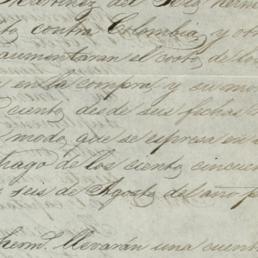 Martinez del Rio herm
to contra Colombia, y otr
aumentaran el costo de los
en la compra, y su mo
ciento desde sus fechas
modo, que se espresa en
pago de los ciento cincue
seis de Agosto del año p
herm.s llevarán una cuenta